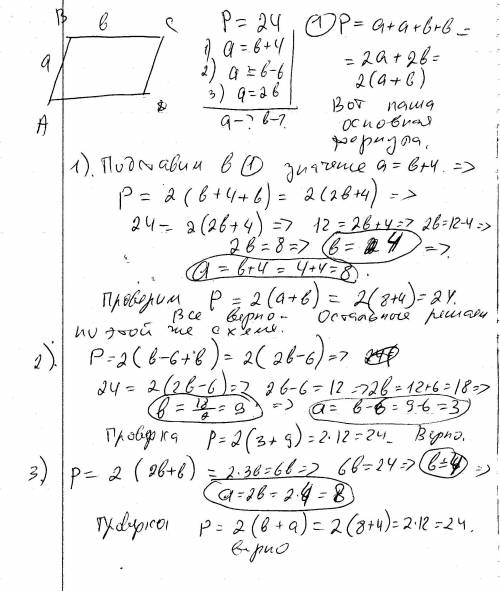 B в C
a
A
P = 24
1) a = в+4
2) a = в-6
3) a = 2в
a-? в-?
① P = a+a+в+в =
= 2a + 2в =
2(a+в)
Вот наша
основная
формула.
1). Подставим в ① значение a = в+4. =>
P = 2(в+4+в) = 2(2в+4) =>
24 = 2(2в+4) => 12 = 2в+4 => 2в=12-4 =>
2в = 8 => в = 4 =>
a = в+4 = 4+4 = 8.
Проверим P = 2(a+в) = 2(8+4) = 24.
Все верно. Остальные решаем
по этой же схеме.
2). P = 2(в-6+в) = 2(2в-6) =>
24 = 2(2в-6) => 2в-6 = 12 => 2в = 12+6 = 18 =>
в = 18/2 = 9 => a = в-6 = 9-6 = 3
Проверка P = 2(3+9) = 2·12 = 24. Верно.
3) P = 2(2в+в) = 2·3в = 6в => 6в = 24 => в = 4 =>
a = 2в = 2·4 = 8
Проверка P = 2(в+a) = 2(8+4) = 2·12 = 24.
верно